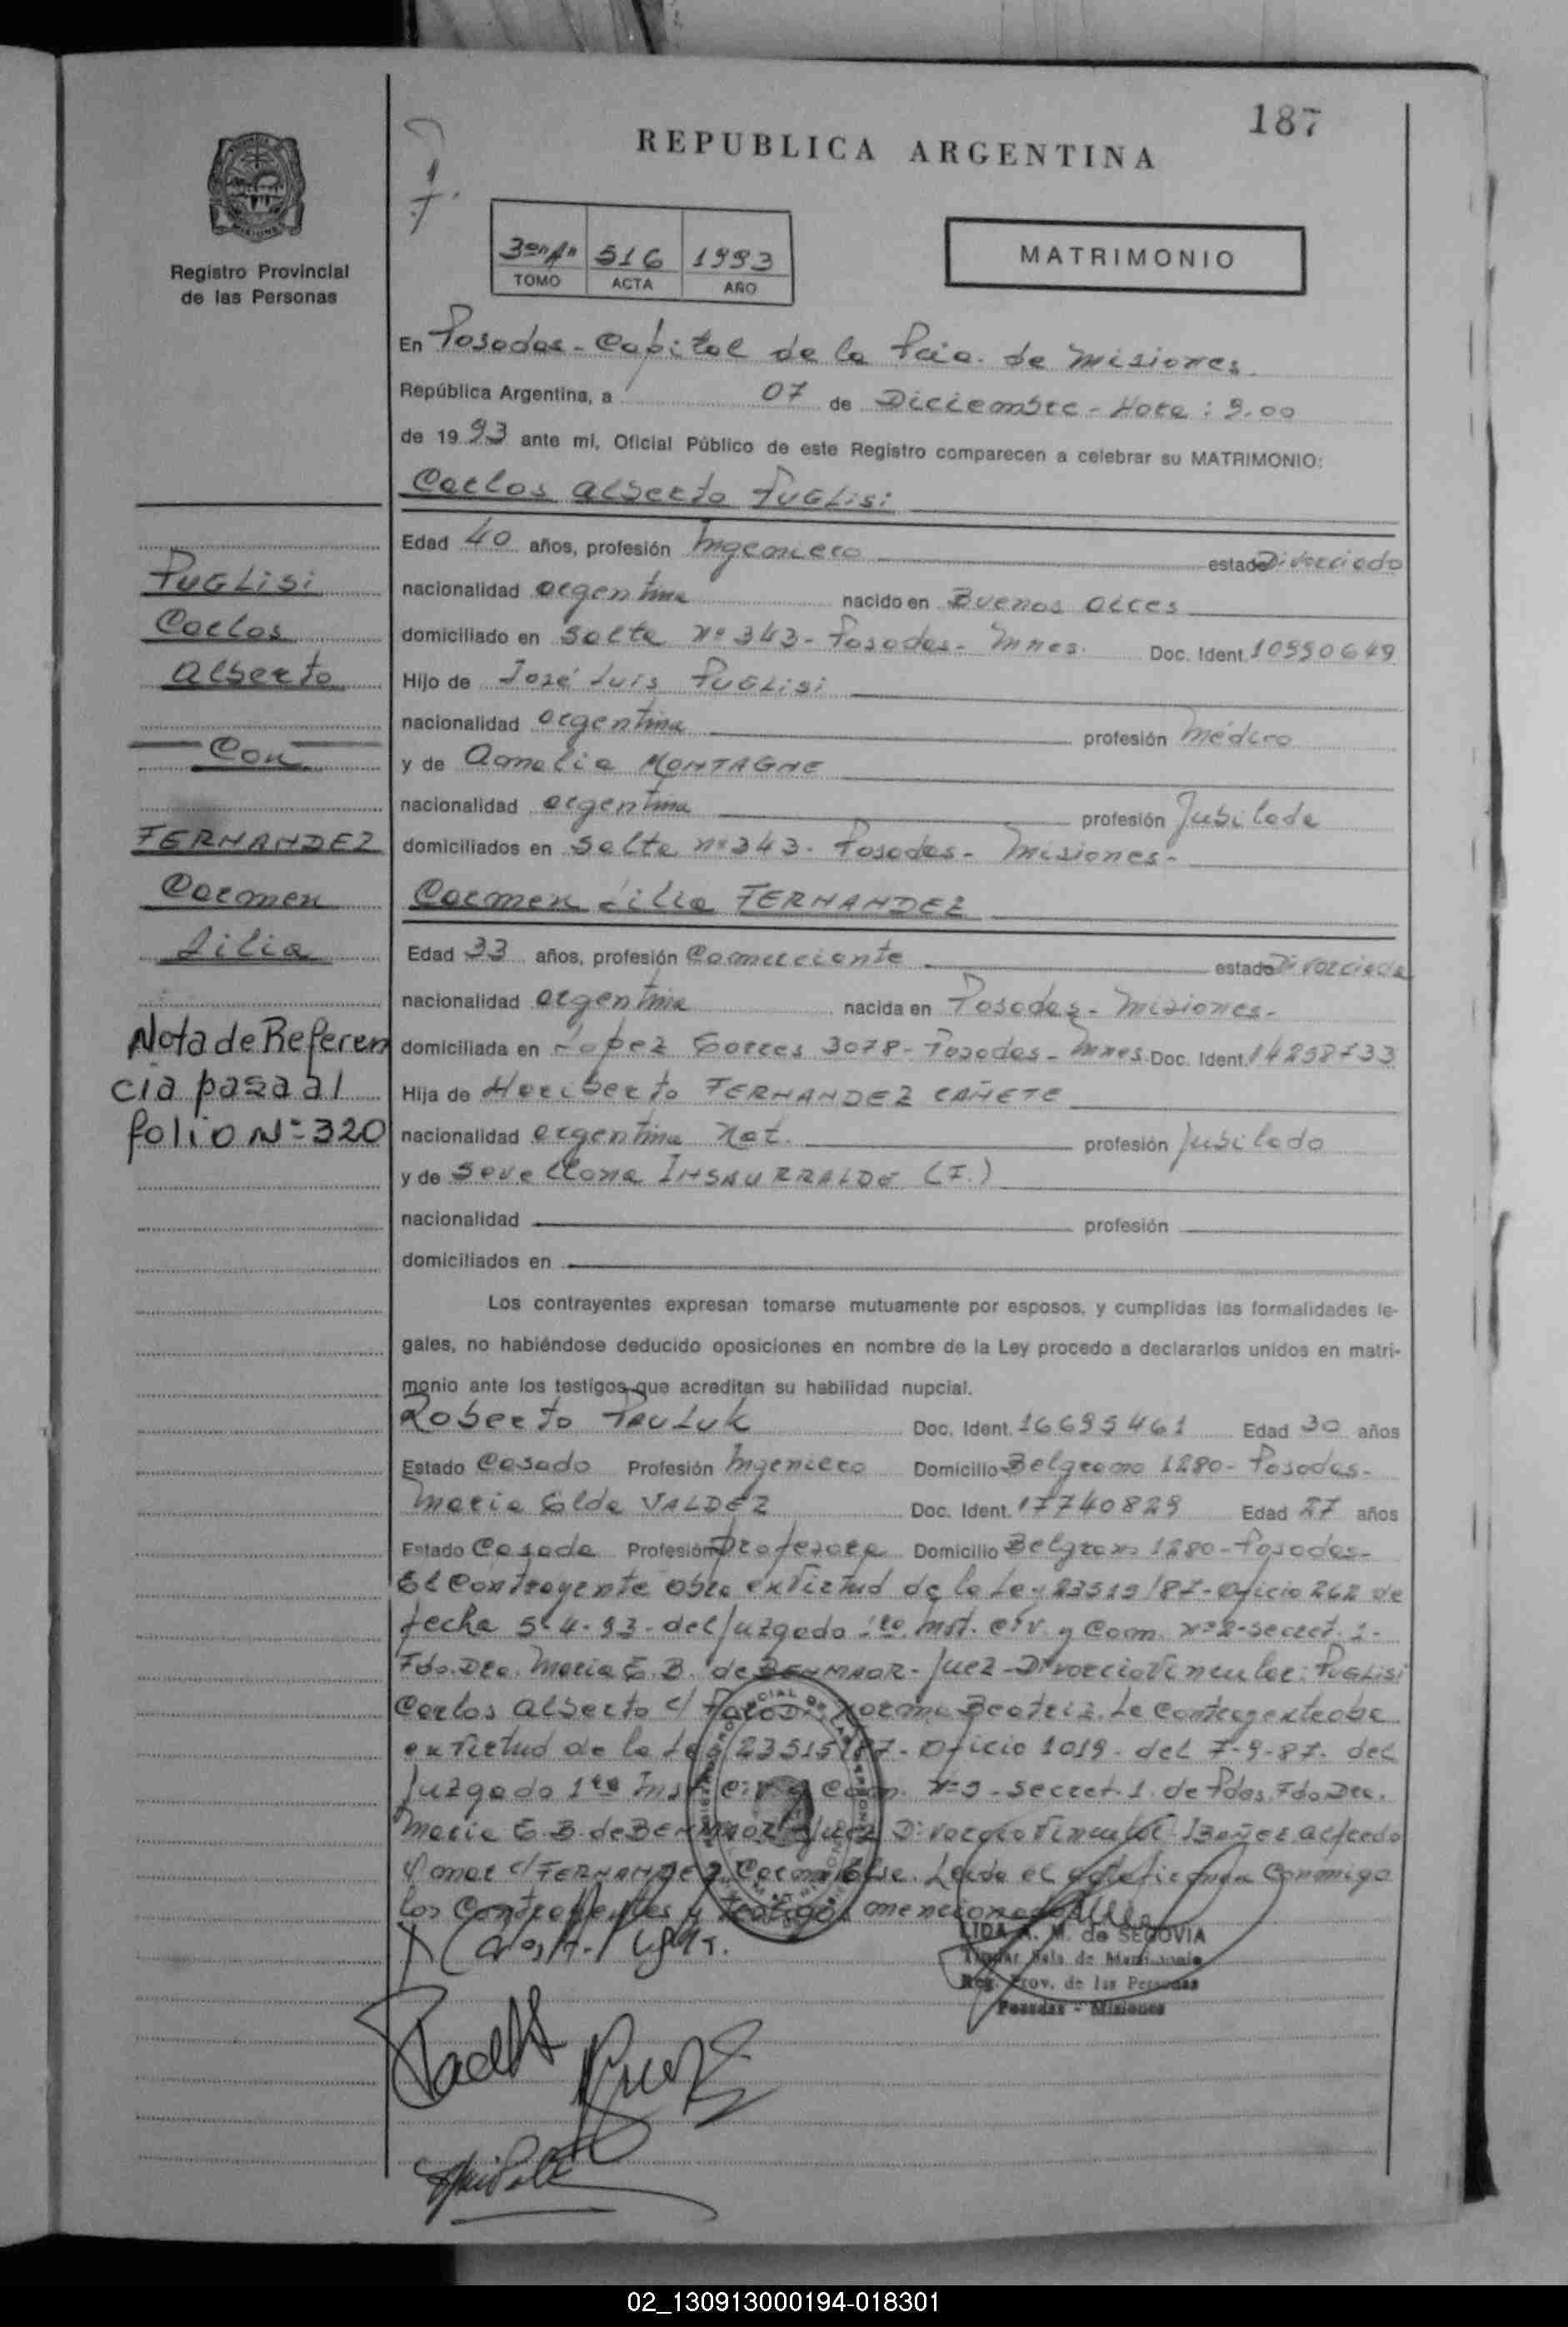 187
REPUBLICA ARGENTINA
Registro Provincial
de las Personas
3er A" 516 1993
TOMO ACTA AÑO
MATRIMONIO
En Posadas - Capital de la Pcia. de Misiones
República Argentina, a 07 de Diciembre - Hora: 9.00
de 1993 ante mí, Oficial Público de este Registro comparecen a celebrar su MATRIMONIO:
Carlos Alberto PUGLISI
Edad 40 años, profesión Ingeniero estado Divorciado
nacionalidad argentina nacido en Buenos Aires
domiciliado en Salta Nº 343 - Posadas - Mnes. Doc. Ident. 10990649
Hijo de José Luis PUGLISI
nacionalidad argentina profesión Médico
y de Amalia MONTAGNE
nacionalidad argentina profesión Jubilada
domiciliados en Salta nº 343 - Posadas - Misiones -
Carmen Lilia FERNANDEZ
Edad 33 años, profesión Comerciante estado Divorciada
nacionalidad argentina nacida en Posadas - Misiones -
domiciliada en Lopez Torres 3078 - Posadas - Mnes Doc. Ident. 14258733
Hija de Heriberto FERNANDEZ CAÑETE
nacionalidad argentina Nat. profesión Jubilado
y de Sevellona INSAURRALDE (F.)
nacionalidad profesión
domiciliados en
PUGLISI
Carlos
Alberto
Con
FERNANDEZ
Carmen
Lilia
Nota de Referen
cia pasa al
folio Nº 320
Los contrayentes expresan tomarse mutuamente por esposos, y cumplidas las formalidades le-
gales, no habiéndose deducido oposiciones en nombre de la Ley procedo a declararlos unidos en matri-
monio ante los testigos que acreditan su habilidad nupcial.
Roberto PAULUK Doc. Ident. 16695461 Edad 30 años
Estado Casado Profesión Ingeniero Domicilio Belgrano 1280 - Posadas -
Maria Elda VALDEZ Doc. Ident. 17740829 Edad 27 años
Estado Casada Profesión Profesora Domicilio Belgrano 1280 - Posadas -
El Contrayente obra en Virtud de la Ley 23515/87 - Oficio 262 de
fecha 5-4-93 - del Juzgado 1ro. Inst. Civ. y Com. nº 2 - Secret. 1 -
Fdo. Dra. Maria E. B. de BENMAOR - Juez - Divorcio Vincular: PUGLISI
Carlos Alberto c/ Norma Beatriz. La Contrayente obra
en Virtud de la Ley 23515/87 - Oficio 1019 - del 7-9-87 - del
Juzgado 1ro Inst Civ y Com. Nº - Secret. 1. de Pdas. Fdo Dra.
Maria E. B. de BENMAOR Juez Divorcio Vincular IBAÑEZ Alfredo
Omar c/ FERNANDEZ, Carmen. Leida el acta firman Conmigo
los Contrayentes y testigos mencionados
LIDA A. M. de SEGOVIA
Titular Sala de Matrimonio
Reg. Prov. de las Personas
Posadas - Misiones
02_130913000194-018301